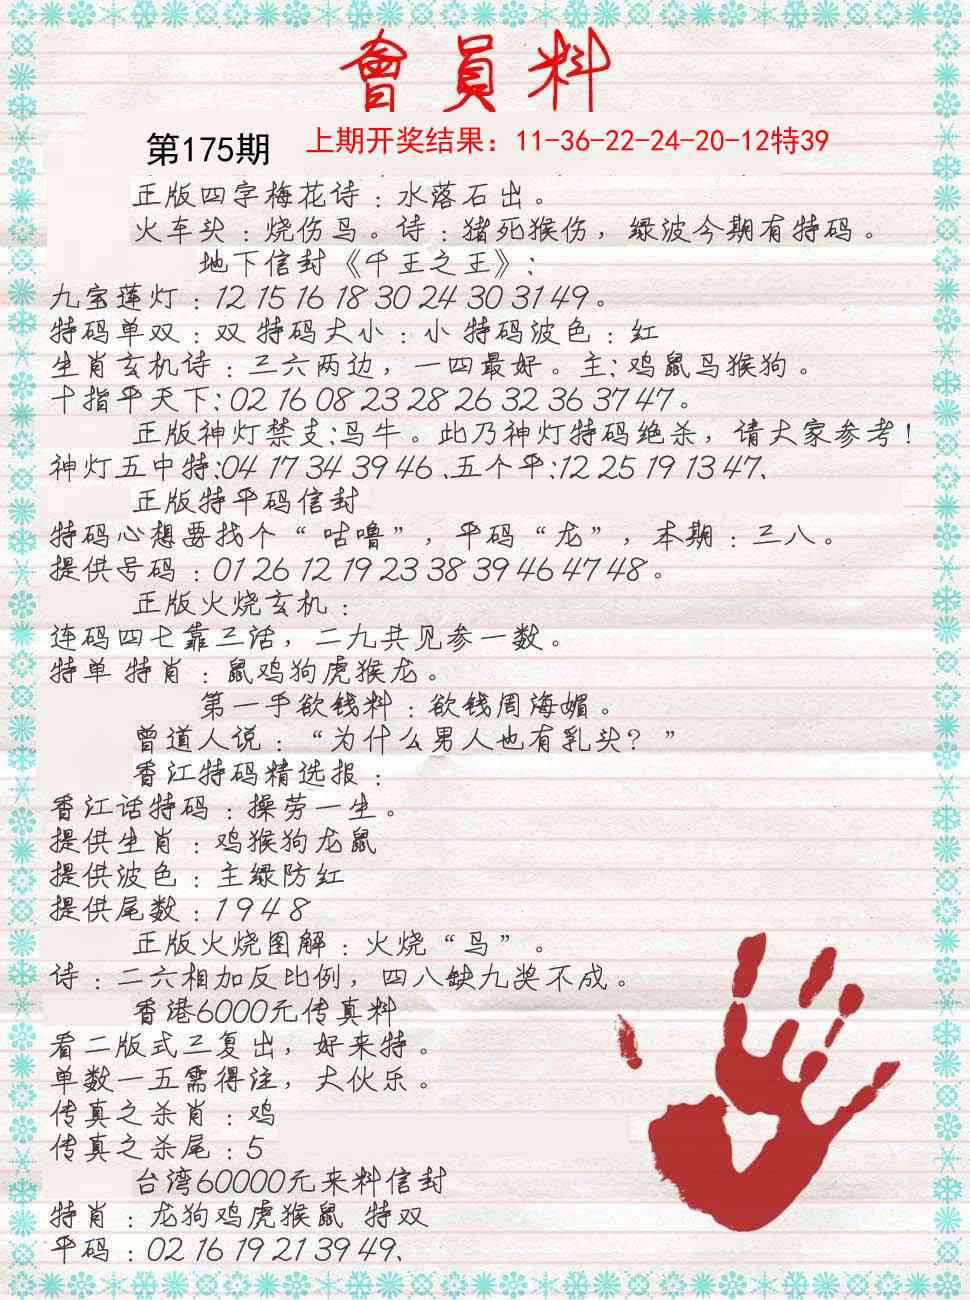 會員料
第175期 上期开奖结果：11-36-22-24-20-12特39
正版四字梅花诗：水落石出。
火车头：烧伤鸟。诗：猪死猴伤，绿波今期有特码。
地下信封《千王之王》:
九宝莲灯：12 15 16 18 30 24 30 31 49。
特码单双：双 特码大小：小 特码波色：红
生肖玄机诗：三六两边，一四最好。主:鸡鼠马猴狗。
十指平天下:02 16 08 23 28 26 32 36 37 47。
正版神灯禁支:鸟牛。此乃神灯特码绝杀，请大家参考!
神灯五中特:04 17 34 39 46、五个平:12 25 19 13 47、
正版特平码信封
特码心想要找个“咕噜”，平码“龙”，本期：三八。
提供号码：01 26 12 19 23 38 39 46 47 48。
正版火烧玄机：
连码四七靠三话，二九共见参一数。
特单 特肖：鼠鸡狗虎猴龙。
第一手欲钱料：欲钱周海媚。
曾道人说：“为什么男人也有乳头？”
香江特码精选报：
香江话特码：操劳一生。
提供生肖：鸡猴狗龙鼠
提供波色：主绿防红
提供尾数：1 9 4 8
正版火烧图解：火烧“鸟”。
诗：二六相加反比例，四八缺九奖不成。
香港6000元传真料
看二版式三复出，好来特。
单数一五需得注，大伙乐。
传真之杀肖：鸡
传真之杀尾：5
台湾60000元来料信封
特肖：龙狗鸡虎猴鼠 特双
平码：02 16 19 21 39 49、